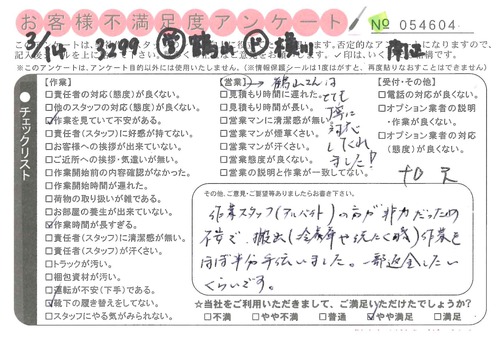 お客様不満足度アンケート
No 054604
3/14 3299 営 鶴山 P 横川
のアンケートは、
否定的なアンケートになりますので、
※このアンケートは、アンケート目的以外には使用いたしません。(※情報保護シールは1度はがすと、再度貼りなおすことはできません)
チェックリスト
【作業】
□責任者の対応(態度)が良くない。
□他のスタッフの対応(態度)が良くない。
□作業を見ていて不安がある。
□責任者(スタッフ)に好感が持てない。
□お客様への挨拶が出来ていない。
□ご近所への挨拶・気遣いが無い。
□作業開始前の内容確認がなかった。
□作業開始時間が遅れた。
□荷物の取り扱いが雑である。
□お部屋の養生が出来ていない。
□作業時間が長すぎる。
□責任者(スタッフ)に清潔感が無い。
□責任者(スタッフ)が汗くさい。
□トラックが汚い。
□梱包資材が汚い。
□運転が不安(下手)である。
□靴下の履き替えをしてない。
□スタッフにやる気がみられない。
【営業】→鶴山さんは
とても
丁寧に
対応
してくれ
ました!
□見積もり時間に遅れた。
□見積もり時間が長い。
□営業マンに清潔感が無い
□営業マンが煙草くさい。
□営業マンが汗くさい。
□営業態度が良くない。
□営業の説明と作業が一致してない。
【受付・その他】
□電話の対応が良くない。
□オプション業者の説明
・作業が良くない。
□オプション業者の対応
(態度)が良くない。
その他、ご意見・ご要望等ありましたらお書き下さい。
作業スタッフ(アルバイト)の方が非力だったため
不安で、搬出(冷蔵庫や洗たく機)作業を
ほぼ半分手伝いました。一部返金してほしい
くらいです。
☆当社をご利用いただきまして、ご満足いただけたでしょうか?
□不満 □やや不満 □普通 □やや満足 □満足